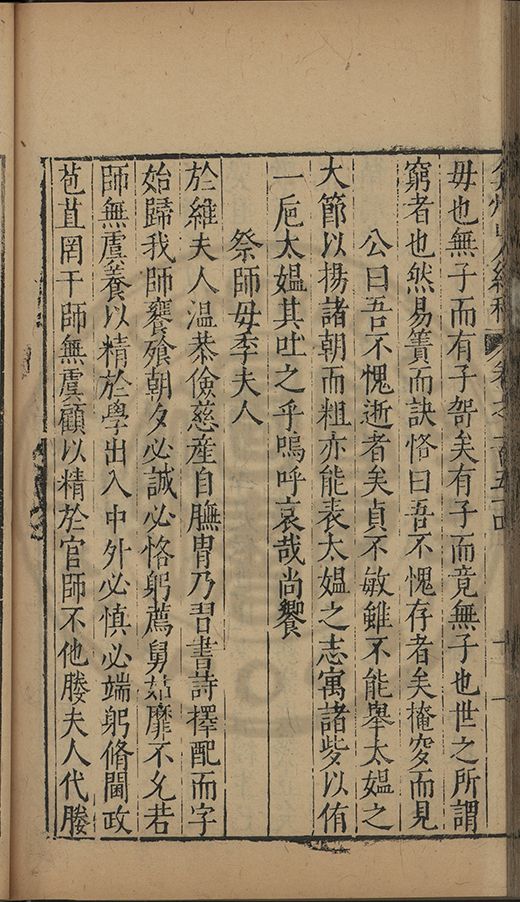 毋也無子而有子哿矣有子而竟無子也世之所謂
窮者也然易簀而訣恪曰吾不愧存者矣掩窆而見
公曰吾不愧逝者矣貞不敏雖不能舉太媼之
大節以揚諸朝而粗亦能表太媼之志寓諸觜以侑
一巵太媼其吐之乎嗚呼哀哉尚饗
祭師毋李夫人
於維夫人温恭儉慈産自膴胄乃習書詩擇配而字
始歸我師饔飱朝夕必誠必恪躬薦舅姑靡不允若
師無虞養以精於學出入中外必慎必端躬脩閫政
苞苴罔干師無虞顧以精於官師不他媵夫人代媵